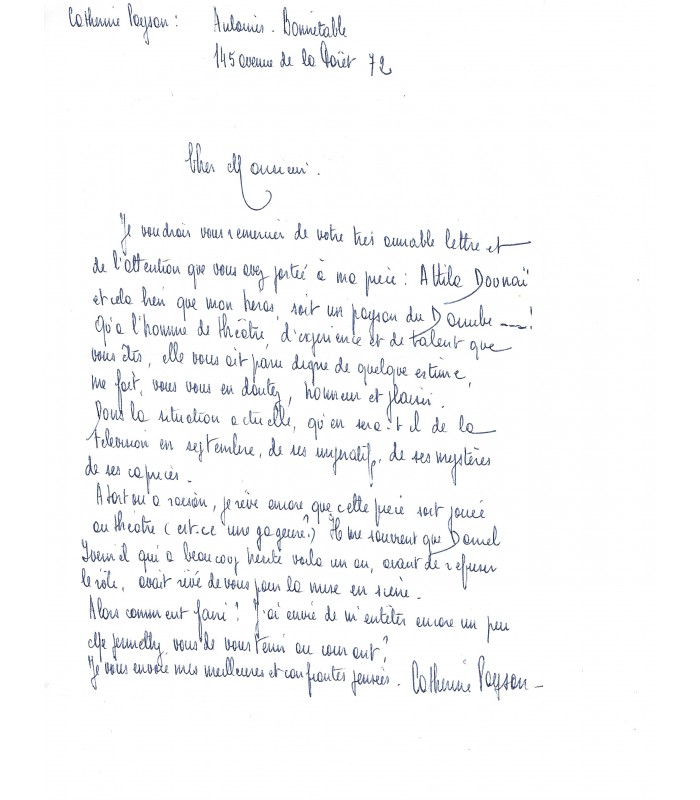 Catherine Paysan : Aulaines - Bonnétable
145 avenue de la Forêt 72
Cher Monsieur.
Je voudrais vous remercier de votre très aimable lettre et
de l'attention que vous avez portée à ma pièce : Attila Dounaï
et cela bien que mon héros, soit un paysan du Danube ---!
Qu'à l'homme de théâtre, d'expérience et de talent que
vous êtes, elle vous ait paru digne de quelque estime,
me fait, vous vous en doutez, honneur et plaisir.
Dans la situation actuelle, qu'en sera-t-il de la
télévision en septembre, de ses impératifs, de ses mystères
de ses caprices.
A tort ou à raison, je rêve encore que cette pièce soit jouée
au théâtre (est-ce une gageure?) Il me souvient que Daniel
Ivernel qui a beaucoup hésité voilà un an, avant de refuser
le rôle, avait rêvé de vous pour la mise en scène.
Alors comment faire? J'ai envie de m'entêter encore un peu
Me permettez vous de vous tenir au courant?
Je vous envoie mes meilleures et confiantes pensées. Catherine Paysan -